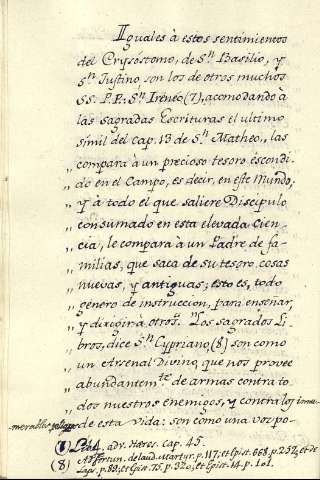 Iguales à estos sentimientos
del Crysóstomo, de Sⁿ Basilio, y
Sⁿ Justino son los de otros muchos
SS. P.P.: Sⁿ Irenéo (7), acomodando à
las sagradas Escrituras el ultimo
simil del cap. 13 de Sⁿ Matheo, las
compara à un precioso tesoro escondi-
„ do en el Campo, es decir, en este Mundo;
„ y à todo el que saliere Discipulo
„ consumado en esta elevada Cien-
„ cia, le compara à un Padre de fa-
„ milias, que saca de su tesoro cosas
„ nuevas, y antiguas; esto es, todo
„ genero de instruccion, para enseñar,
„ y dirigir à otros. „ Los sagrados Li-
„ bros, dice Sⁿ Cypriano, (8) son como
„ un Arsenal Divino, que nos provee
„ abundantemᵗᵉ de armas contra to-
„ dos nuestros enemigos, y contra los innu-
merables peligros de esta vida: son como una voz po-
(7) Lib. 4. adv. Hæres. Cap. 45.
(8) Ad Fortun. de laud. Martyr. p. 117. et Epist. 668. p. 252. et de
Laps. p. 83. et Epist. 75. p. 320. et Epist. 14. p. 101.